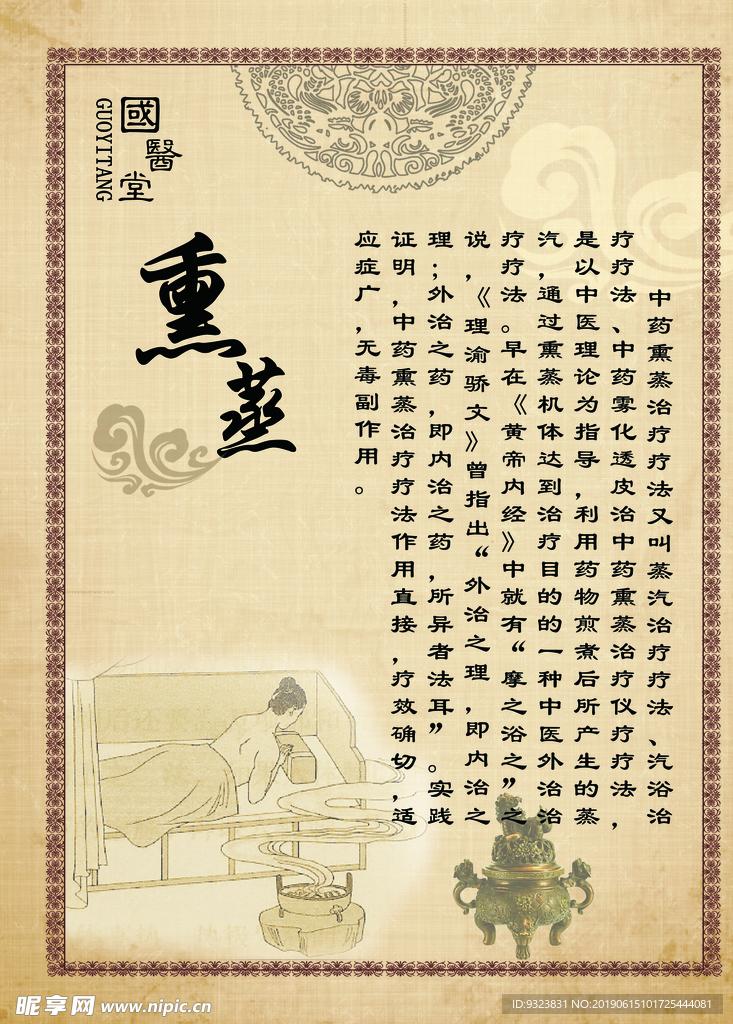 國醫堂
GUOYITANG
熏蒸
中药熏蒸治疗疗法又叫蒸汽治疗疗法、汽浴治
疗疗法、中药雾化透皮治中药熏蒸治疗仪疗疗法，
是以中医理论为指导，利用药物煎煮后所产生的蒸
汽，通过熏蒸机体达到治疗目的的一种中医外治治
疗疗法。早在《黄帝内经》中就有“摩之浴之”之
说，《理渝骄文》曾指出“外治之理，即内治之
理；外治之药，即内治之药，所异者法耳”。实践
证明，中药熏蒸治疗疗法作用直接，疗效确切，适
应症广，无毒副作用。
昵享网 www.nipic.cn
ID:9323831 NO:20190615101725444081